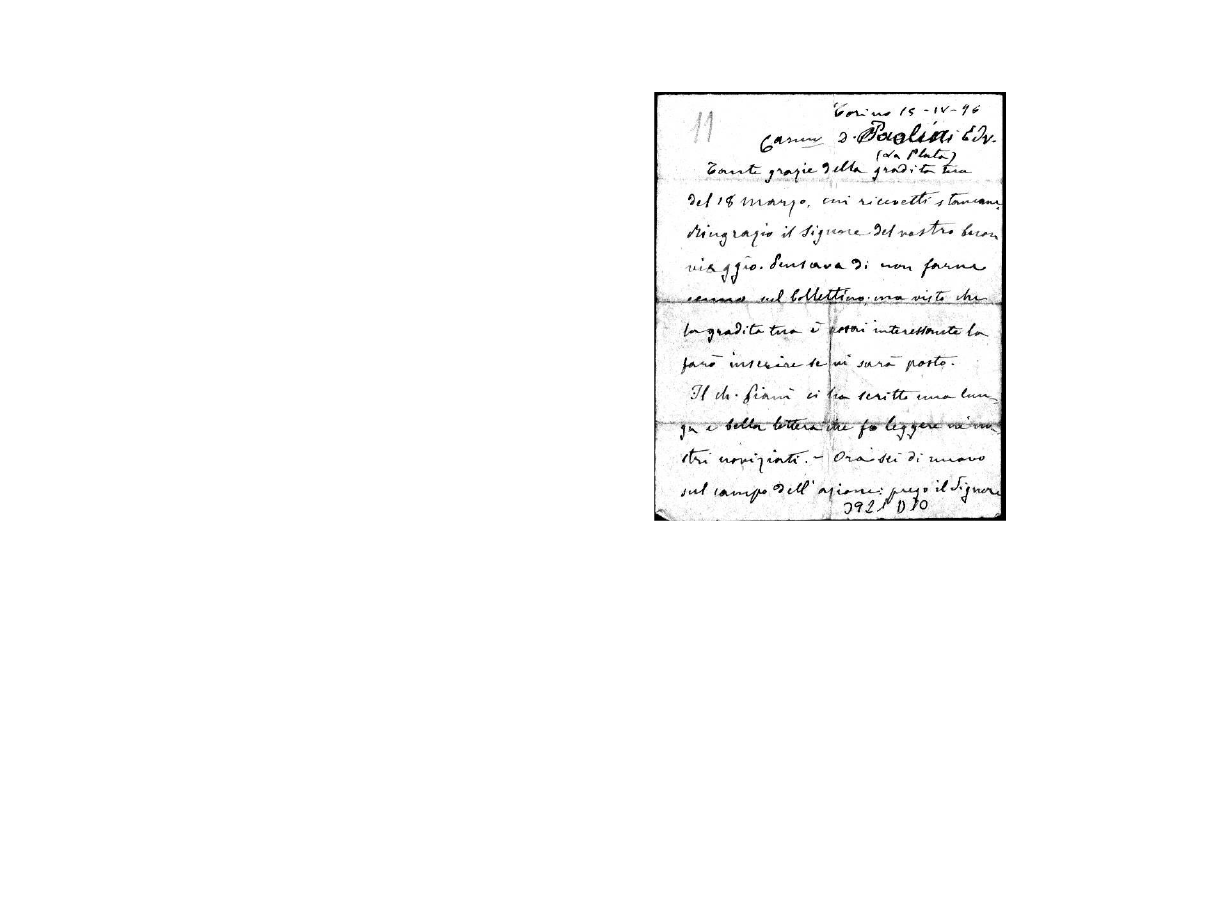 11
Torino 15-IV-96
Carissimo D. Paolini Edv.
(La Plata)
Tante grazie della gradita tua
del 18 marzo, cui ricevetti stamane.
Ringrazio il Signore del vostro buon
viaggio. Pensava di non farne
cenno sul bollettino; ma visto che
la gradita tua è assai interessante la
farò inserire se vi sarà posto.
Il ch. Piani ci ha scritto una lun-
ga e bella lettera che fo leggere ne' no-
stri noviziati. - Ora sei di nuovo
sul campo dell'azione: prego il Signore